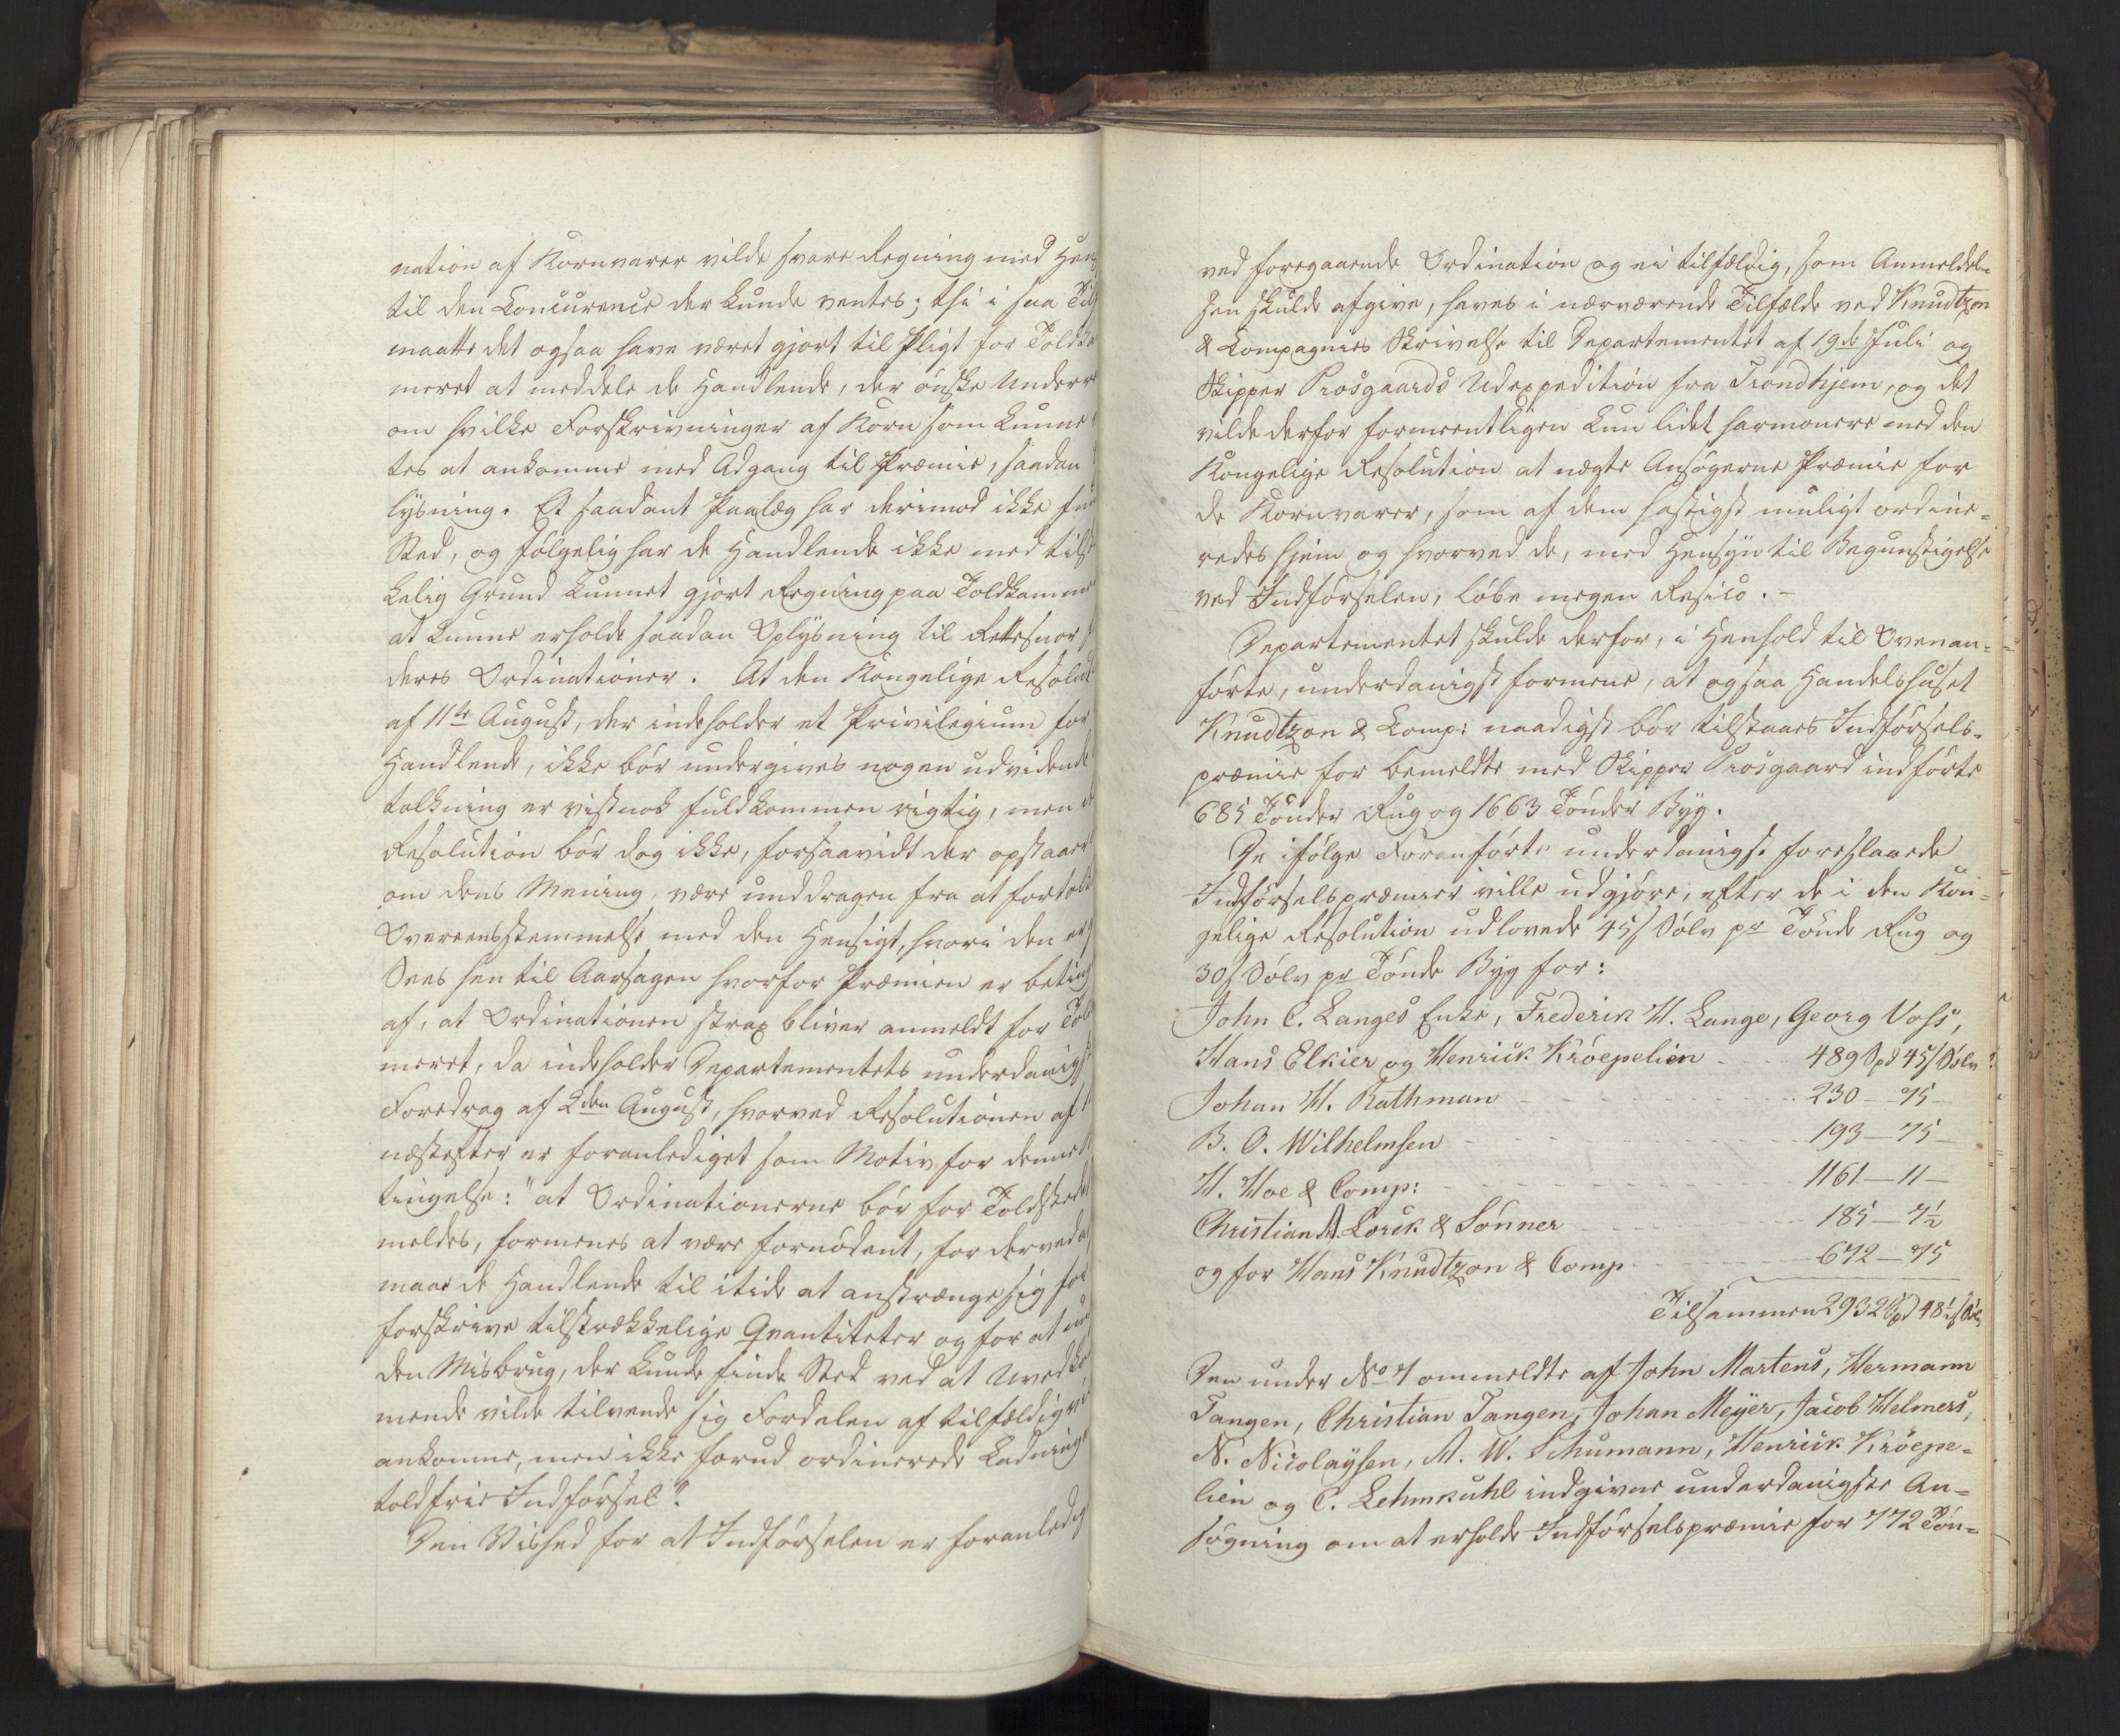 nation af Kornvarer vilde svare Regning med Hen
til den Concurence der kunde ventes; thi i saa Til
maatte det ogsaa have været gjort til Pligt for Toldka
meret at meddele de Handlende, der ønske Underre
om hvilke Forskrivninger af Korn som kunne
tes at ankomme med Adgang til Præmie, saadan
lysning. Et saadant Paalæg har derimod ikke fun
Sted, og følgelig har de Handlende ikke med tilst
kelig Grund kunnet gjort Regning paa Toldkamme
at kunne erholde saadan Oplysning til Rettesnor
deres Ordinationer. At den Kongelige Resolut
af 11te August, der indeholder et Privilegium for
Handlende, ikke bør undergives nogen udvidende
tolkning er vistnok fuldkommen rigtig, men
Resolution bør dog ikke, forsaavidt der opstaaer
om dens Mening, være unddragen fra at fortolk
Overeensstemmelse med den Hensigt, hvori den er
Sees hen til Aarsagen hvorfor Præmien er beting
af, at Ordinationen strax bliver anmeldt for Told
meret, da indeholder Departementets underdanigst
Foredrag af 2den August, hvorved Resolutionen af
næstefter er foranlediget som Motiv for denne
tingelse: "at Ordinationerne bør for Toldstedet
meldes, formenes at være fornødent, for derved at
maae de Handlende til itide at anstrænge sig for
forskrive tilstrækkelige Qvantiteter og for at und
den Misbrug, der kunde finde Sted ved at Uvedko
mende vilde tilvende sig Fordelen af tilfældigvi
ankomne, men ikke forud ordinerede Ladning
toldfrie Indførsel".
Den Vished for at Indførselen er foranledig
ved foregaaende Ordination og ei tilfældig, som Anmeldel-
sen skulde afgive, haves i nærværende Tilfælde ved Knudtzon
& Compagnies Skrivelse til Departementet af 19de Juli og
Skipper Prosgaards Udexpedition fra Trondhjem, og det
vilde derfor formeentligen kun lidet harmonere med den
Kongelige Resolution at nægte Ansøgerne Præmie for
de Kornvarer, som af dem hastigst muligt ordine-
redes hjem og hvorved de, med Hensyn til Begunstigelse
ved Indførselen, løbe megen Resico. -
Departementet skulde derfor, i Henhold til Ovenan-
førte, underdanigst formene, at ogsaa Handelshuset
Knudtzon & Comp: naadigst bør tilstaaes Indførsels-
præmie for bemeldte med Skipper Prosgaard indførte
685 Tønder Rug og 1663 Tønder Byg.
De ifølge Foranførte underdanigst foreslaaede
Indførselspræmier ville udgjøre, efter de i den Kon-
gelige Resolution udlovede 45 s Sølv pr Tønde Rug og
30 s Sølv pr Tønde Byg for:
John C. Langes Enke, Frederik H. Lange, Georg Voss,
Hans Elkier og Henrick Krøepelien - - 489 Spd 45 s Sølv
Johan H. Rathman - - - 230 - 75 -
B. O. Wilhelmsen - - - 193 - 75 -
H. Hoe & Comp: - - - 1161 - 11 -
Christian A. Lorck & Sønner - - - 185 - 7½
og for Hans Knudtzon & Comp - - - 672 - 75
Tilsammen 2932 Spd 48½ s Sølv
Den under No 7 ommeldte af John Martens, Hermann
Tangen, Christian Tangen, Johan Meyer, Jacob Helmers,
N. Nicolaysen, A. W. Schumann, Henrick Krøepe-
lien og C. Lehmkuhl indgivne underdanigste An-
søgning om at erholde Indførselspræmie for 772 Tøn-